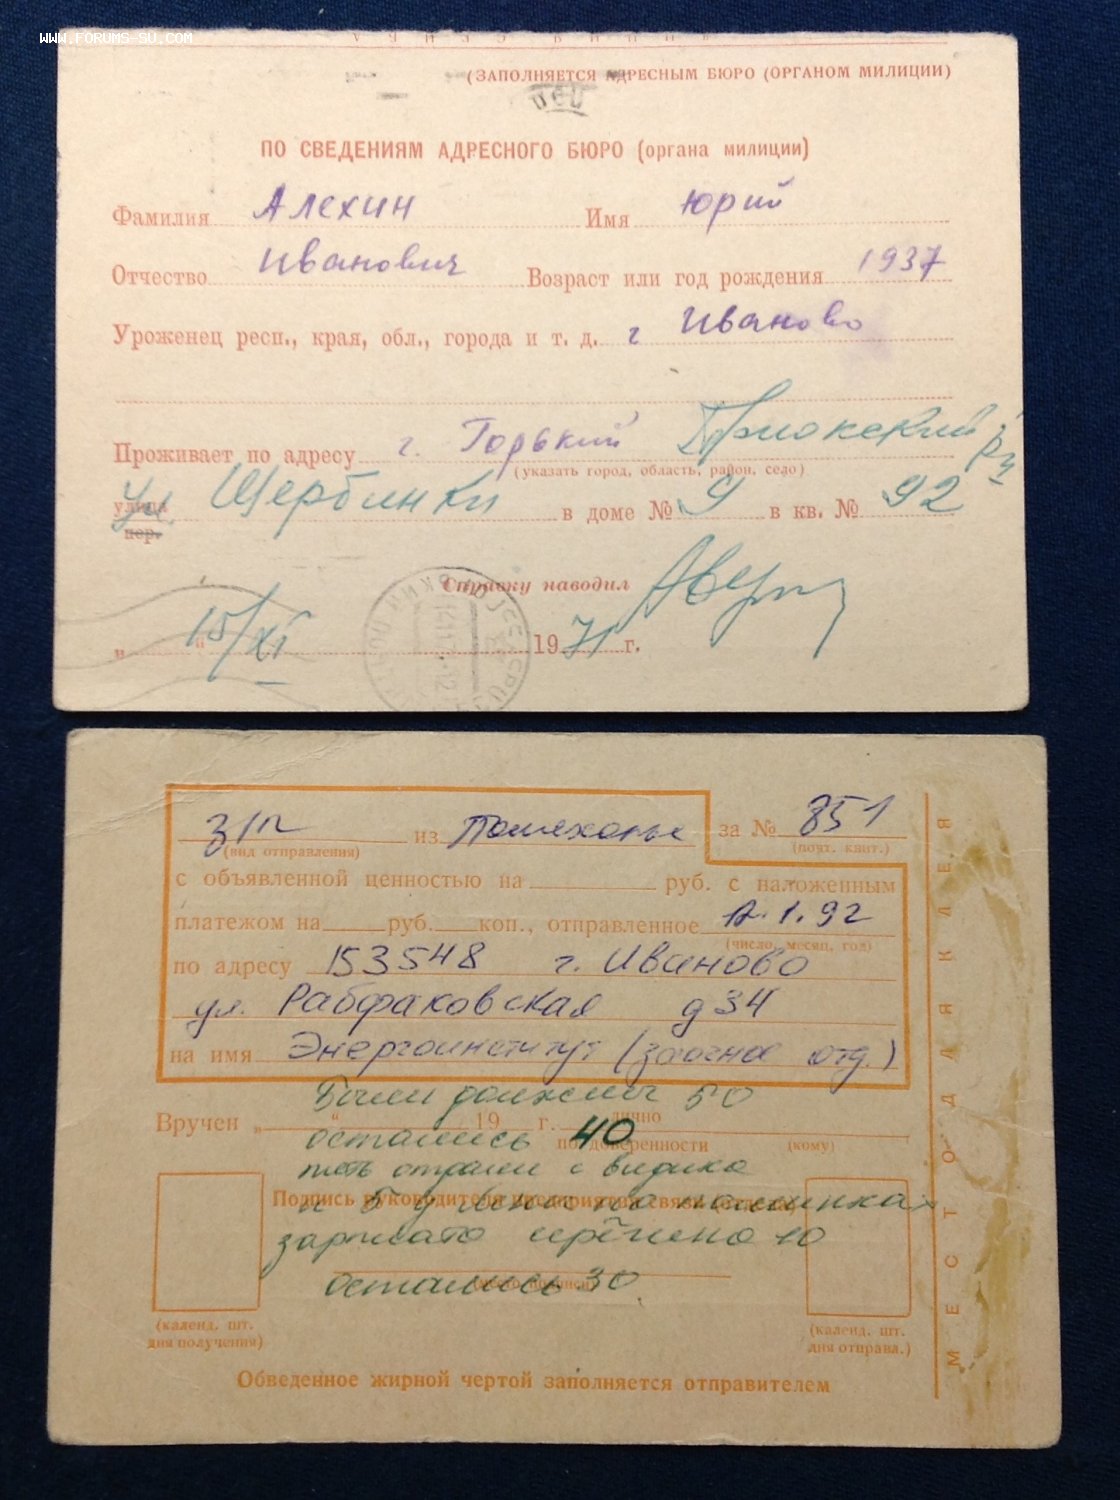 WWW.FORUMS-SU.COM
(ЗАПОЛНЯЕТСЯ АДРЕСНЫМ БЮРО (ОРГАНОМ МИЛИЦИИ)
ПО СВЕДЕНИЯМ АДРЕСНОГО БЮРО (органа милиции)
Фамилия Алехин Имя Юрий
Отчество Иванович Возраст или год рождения 1937
Уроженец респ., края, обл., города и т. д. г Иваново
Проживает по адресу г. Горький Приокский р-н
(указать город, область, район, село)
улица ул. Щербинки в доме № 9 в кв. № 92
пер.
Справку наводил
" 15/XI " 1971 г.
з/п из Пошехонье за № 851
(вид отправления) (почт. квит.)
с объявленной ценностью на руб. с наложенным
платежом на руб. коп., отправленное 12.1.92
(число, месяц, год)
по адресу 153548 г. Иваново
ул. Рабфаковская д 34
на имя Энергоинститут (заочное отд.)
Были должны 50
Вручен " " 19 г. лично
остались 40
по доверенности (кому)
и видика
Подпись руководителя предприятия связи
и 5 машинках
10
остались 30
(календ. шт. дня получения)
(календ. шт. дня отправл.)
Обведенное жирной чертой заполняется отправителем
МЕСТО ДЛЯ КЛЕЯ